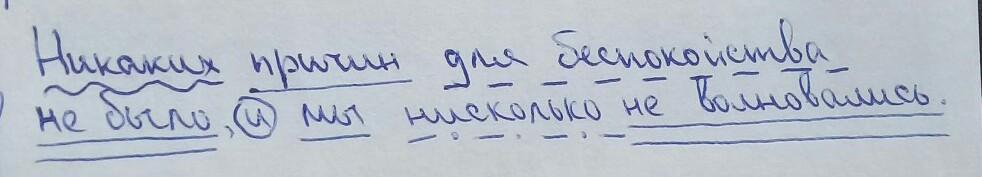 Никаких причин для беспокойства
не было, и мы нисколько не волновались.